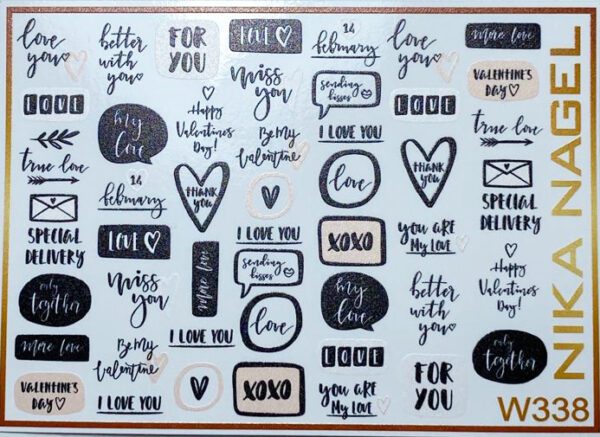 love
you
better
with
you
FOR
YOU
LOVE
14
february
love
you
more love
LOVE
my
love
Happy
Valentines
Day!
miss
you
sending
kisses
LOVE
VALENTINE'S
DAY
true love
14
february
THANK
YOU
Be My
Valentine
I LOVE YOU
love
THANK
YOU
true love
SPECIAL
DELIVERY
LOVE
more love
I LOVE YOU
XOXO
you ARE
My LOVE
SPECIAL
DELIVERY
only
together
miss
you
sending
kisses
my
love
better
with
you
Happy
Valentines
Day!
more love
Be My
Valentine
I LOVE YOU
love
LOVE
only
together
VALENTINE'S
DAY
I LOVE YOU
XOXO
you ARE
My LOVE
FOR
YOU
NIKA NAGEL
W338